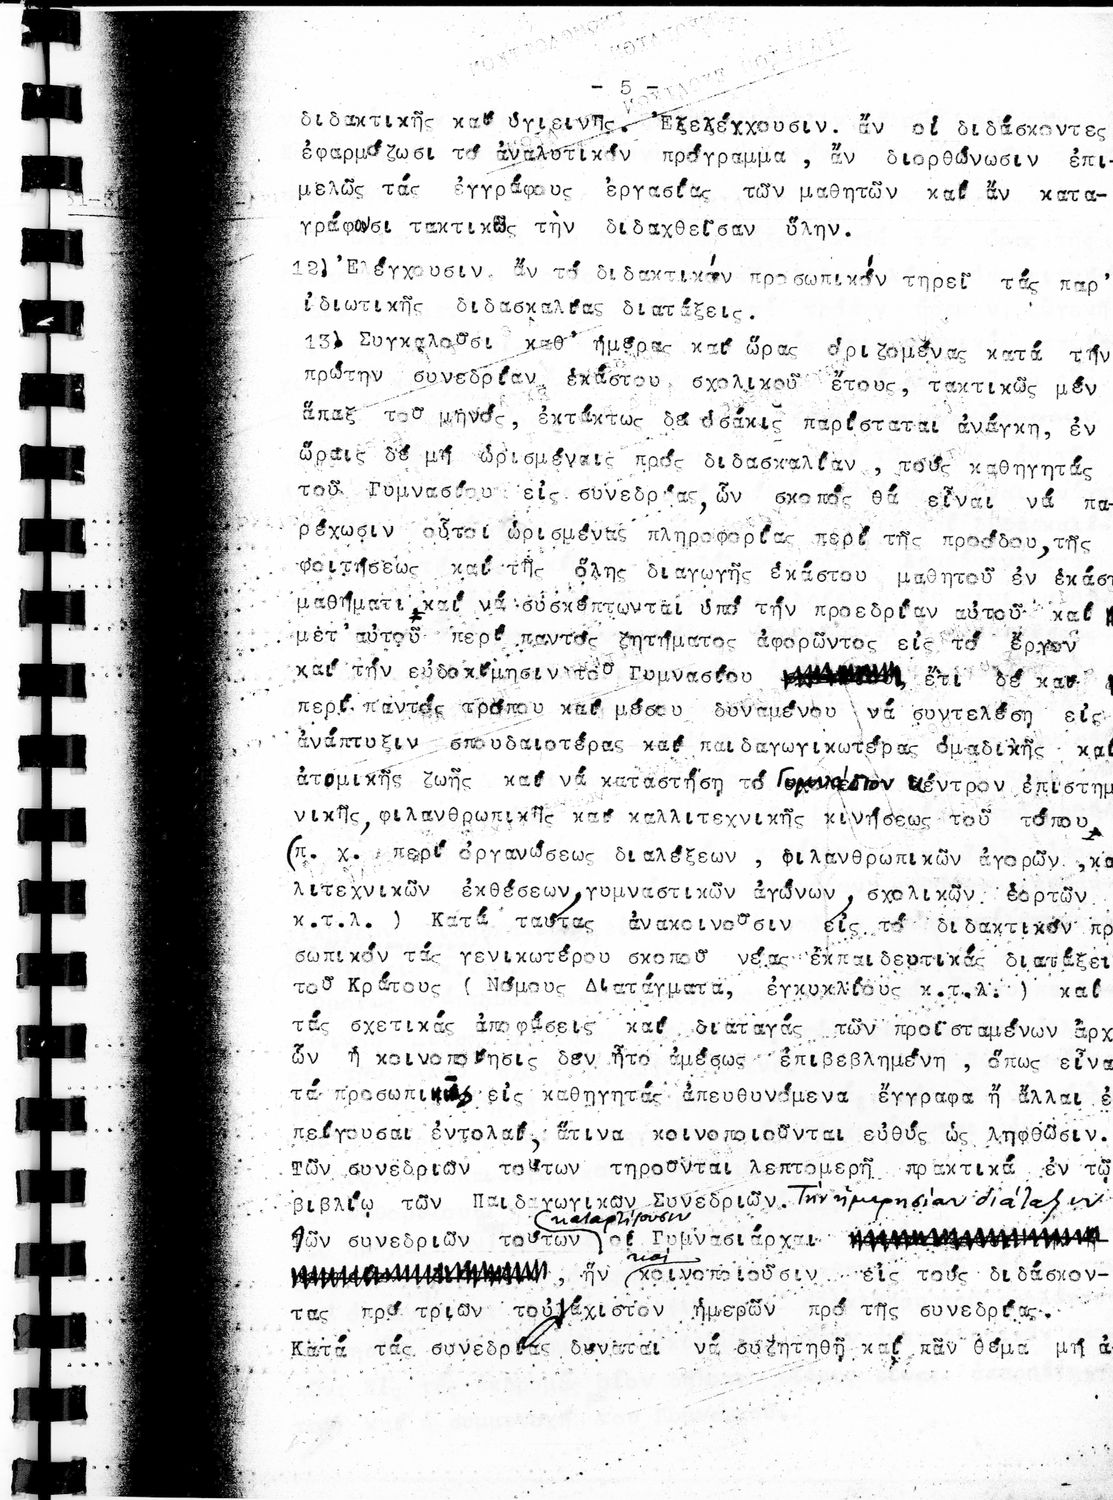 - 5 -
διδακτικῆς καί ὑγιεινῆς. Ἐξελέγχουσιν. ἄν οἱ διδάσκοντες
ἐφαρμόζωσι τό ἀναλυτικόν πρόγραμμα , ἄν διορθώνωσιν ἐπι-
μελῶς τάς ἐγγράφους ἐργασίας τῶν μαθητῶν καί ἄν κατα-
γράφωσι τακτικῶς τὴν διδαχθεῖσαν ὕλην.
12) Ἐλέγχουσιν. ἄν τό διδακτικόν προσωπικόν τηρεῖ τάς παρ'
ἰδιωτικῆς διδασκαλίας διατάξεις.
13) Συγκαλοῦσι καθ' ἡμέρας καί ὥρας ὁριζομένας κατά τήν
πρώτην συνεδρίαν ἑκάστου σχολικοῦ ἔτους, τακτικῶς μέν
ἅπαξ τοῦ μηνός, ἐκτάκτως δέ ὁσάκις παρίσταται ἀνάγκη, ἐν
ὥραις δέ μή ὡρισμέναις πρός διδασκαλίαν , τούς καθηγητάς
τοῦ Γυμνασίου εἰς συνεδρίας, ὧν σκοπός θά εἶναι νά πα-
ρέχωσιν οὗτοι ὡρισμένας πληροφορίας περί τῆς προόδου, τῆς
φοιτήσεως καί τῆς ὅλης διαγωγῆς ἑκάστου μαθητοῦ ἐν ἑκάστ
μαθήματι καί νά συσκέπτωνται ὑπό τήν προεδρίαν αὐτοῦ καί
μετ' αὐτοῦ περί παντός ζητήματος ἀφορῶντος εἰς τό ἔργον
καί τήν εὐδοκίμησιν τοῦ Γυμνασίου , ἔτι δέ καί
περί παντός τρόπου καί μέσου δυναμένου νά συντελέσῃ εἰς
ἀνάπτυξιν σπουδαιοτέρας καί παιδαγωγικωτέρας ὁμαδικῆς καί
ἀτομικῆς ζωῆς καί νά καταστήσῃ τό Γυμνάσιον κέντρον ἐπιστημ
νικῆς, φιλανθρωπικῆς καί καλλιτεχνικῆς κινήσεως τοῦ τόπου
(π. χ. περί ὀργανώσεως διαλέξεων , φιλανθρωπικῶν ἀγορῶν , κα
λιτεχνικῶν ἐκθέσεων, γυμναστικῶν ἀγώνων, σχολικῶν ἑορτῶν
κ.τ.λ. ) Κατά ταύτας ἀνακοινοῦσιν εἰς τό διδακτικόν πρ
σωπικόν τάς γενικωτέρου σκοποῦ νέας ἐκπαιδευτικάς διατάξει
τοῦ Κράτους ( Νόμους Διατάγματα, ἐγκυκλίους κ.τ.λ. ) καί
τάς σχετικάς ἀποφάσεις καί διαταγάς τῶν προϊσταμένων ἀρχ
ὧν ἡ κοινοποίησις δέν ἦτο ἀμέσως ἐπιβεβλημένη , ὅπως εἶνα
τά προσωπικῶς εἰς καθηγητάς ἀπευθυνόμενα ἔγγραφα ἤ ἄλλαι ἐ
πείγουσαι ἐντολαί, ἅτινα κοινοποιοῦνται εὐθύς ὡς ληφθῶσιν.
Τῶν συνεδριῶν τούτων τηροῦνται λεπτομερῆ πρακτικά ἐν τῷ
βιβλίῳ τῶν Παιδαγωγικῶν Συνεδριῶν. Τὴν ἡμερησίαν διάταξιν
τῶν συνεδριῶν τούτων καταρτίζουσιν οἱ Γυμνασιάρχαι
, ἥν καί κοινοποιοῦσιν εἰς τούς διδάσκον-
τας πρό τριῶν τοὐλάχιστον ἡμερῶν πρό τῆς συνεδρίας.
Κατά τάς συνεδρίας δύναται νά συζητηθῇ καί πᾶν θέμα μή ἀ